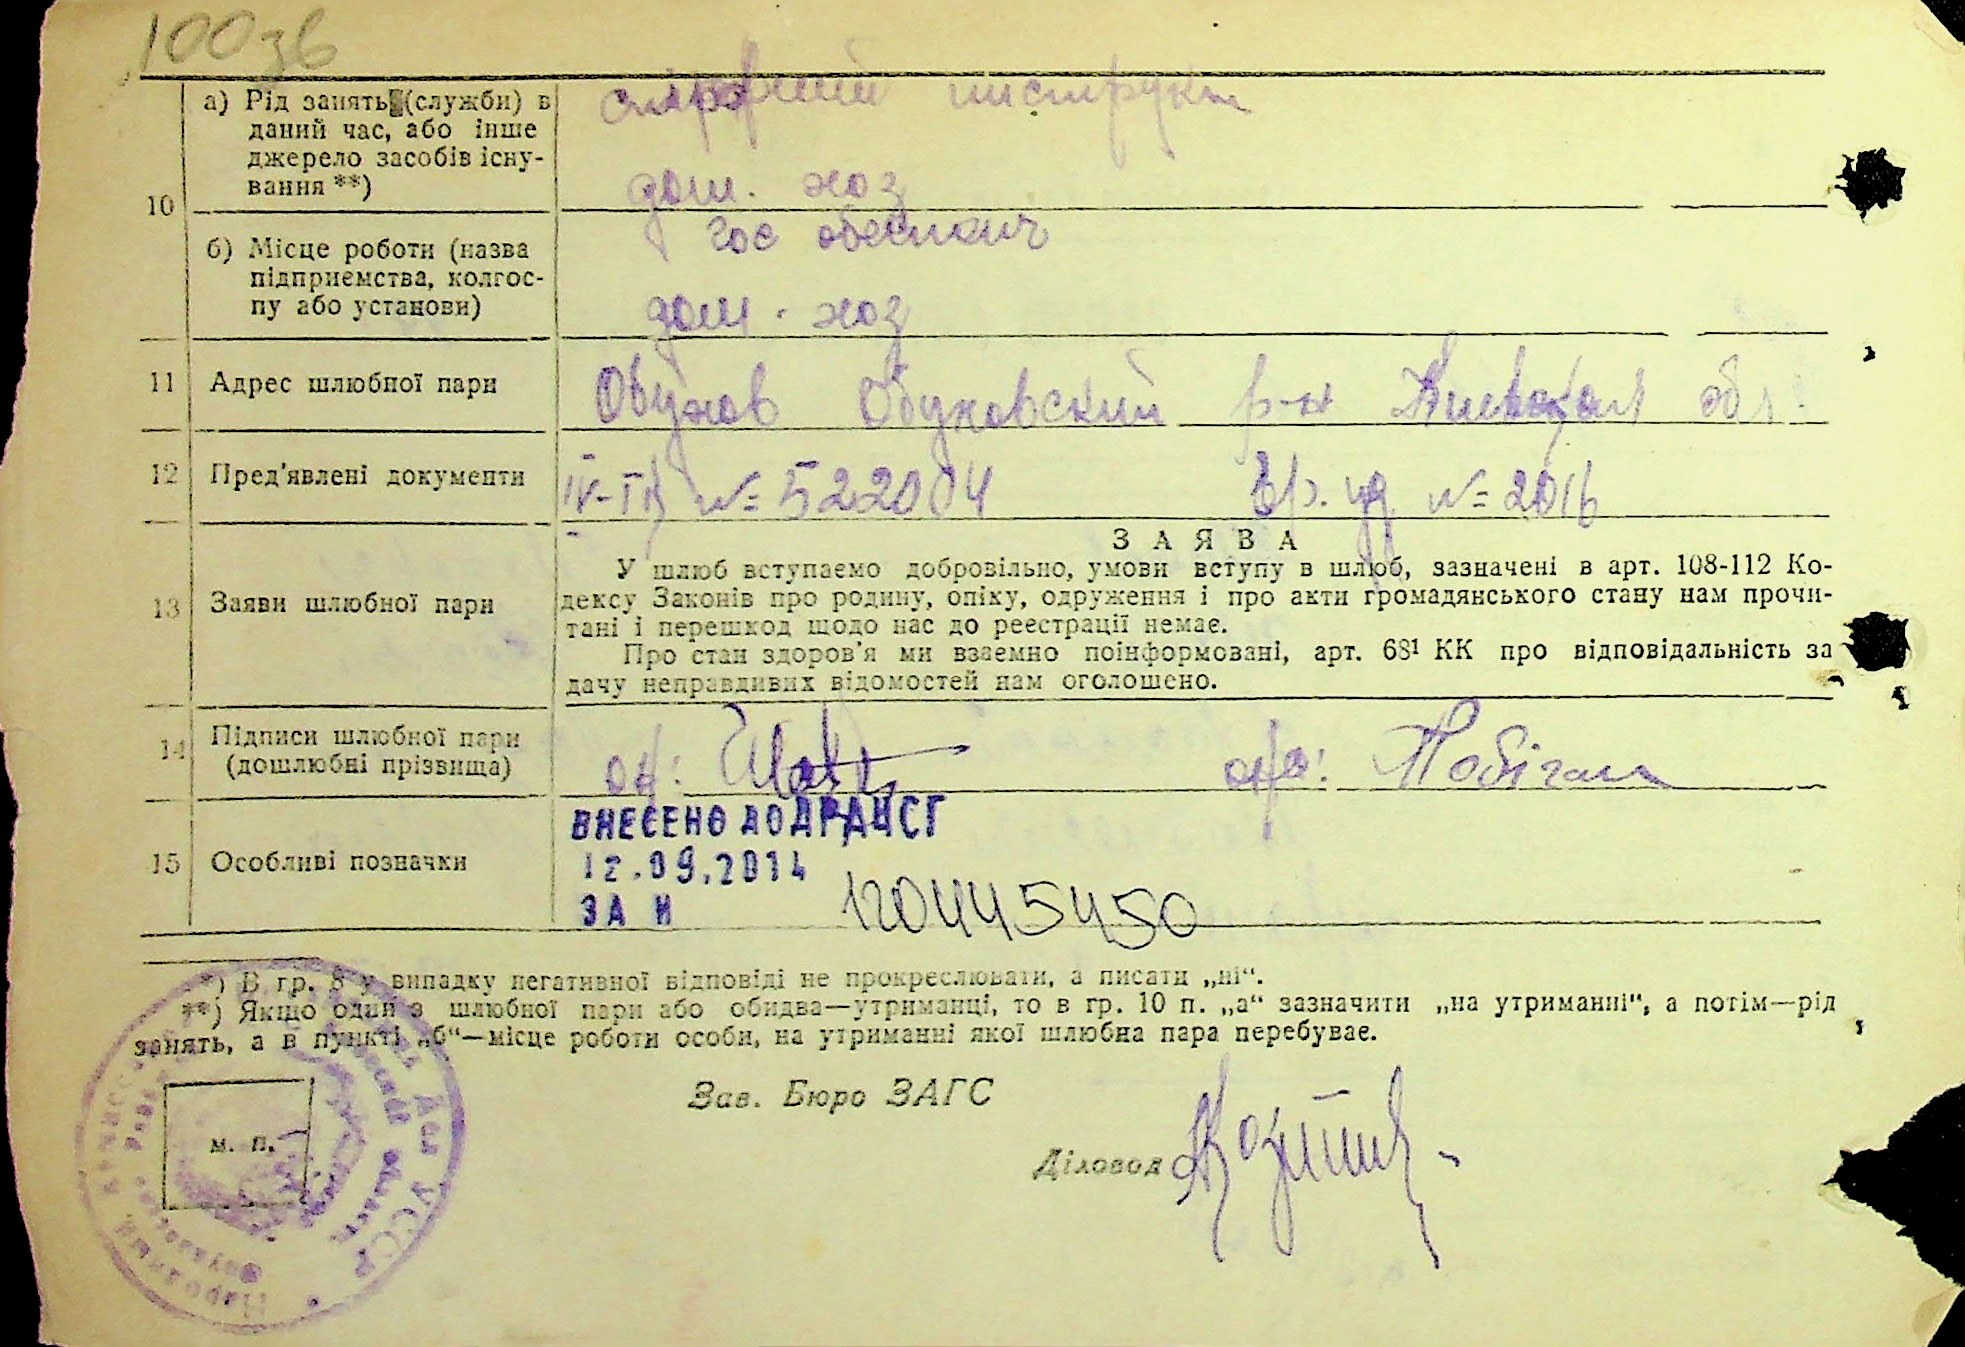 100зв
а) Рід занять (служби) в
даний час, або інше
джерело засобів існу-
вання **)
инструкт
дом. хоз
10
б) Місце роботи (назва
підприємства, колгос-
пу або установи)
гос
дом. хоз
11 Адрес шлюбної пари Обухов Обуховский р-н Киевская обл.
12 Пред'явлені документи № 522004 Вр. уд № 2016
13 Заяви шлюбної пари
ЗАЯВА
У шлюб вступаємо добровільно, умови вступу в шлюб, зазначені в арт. 108-112 Ко-
дексу Законів про родину, опіку, одруження і про акти громадянського стану нам прочи-
тані і перешкод щодо нас до реєстрації немає.
Про стан здоров'я ми взаємно поінформовані, арт. 68¹ КК про відповідальність за
дачу неправдивих відомостей нам оголошено.
14 Підписи шлюбної пари
(дошлюбні прізвища)
он: она:
15 Особливі позначки
ВНЕСЕНО ДО ДРАЦСГ
12.09.2014
ЗА N 120445450
*) В гр. 8 у випадку негативної відповіді не прокреслювати, а писати „ні“.
**) Якщо один з шлюбної пари або обидва—утриманці, то в гр. 10 п. „а“ зазначити „на утриманні“, а потім—рід
занять, а в пункті „б“—місце роботи особи, на утриманні якої шлюбна пара перебуває.
Зав. Бюро ЗАГС
м. п.
Діловод
УССР